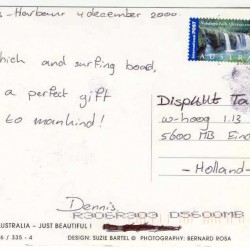 - Harbour 4 december 2000.
chick and surfing board,
a perfect gift
to mankind!
Dispuut Ta
w-hoog 1.13
5600 MB Ein
- Holland -
Dennis
R306R303 D5600MB
AUSTRALIA – JUST BEAUTIFUL !
6 / 335 - 4 DESIGN: SUZIE BARTEL © PHOTOGRAPHY: BERNARD ROSA